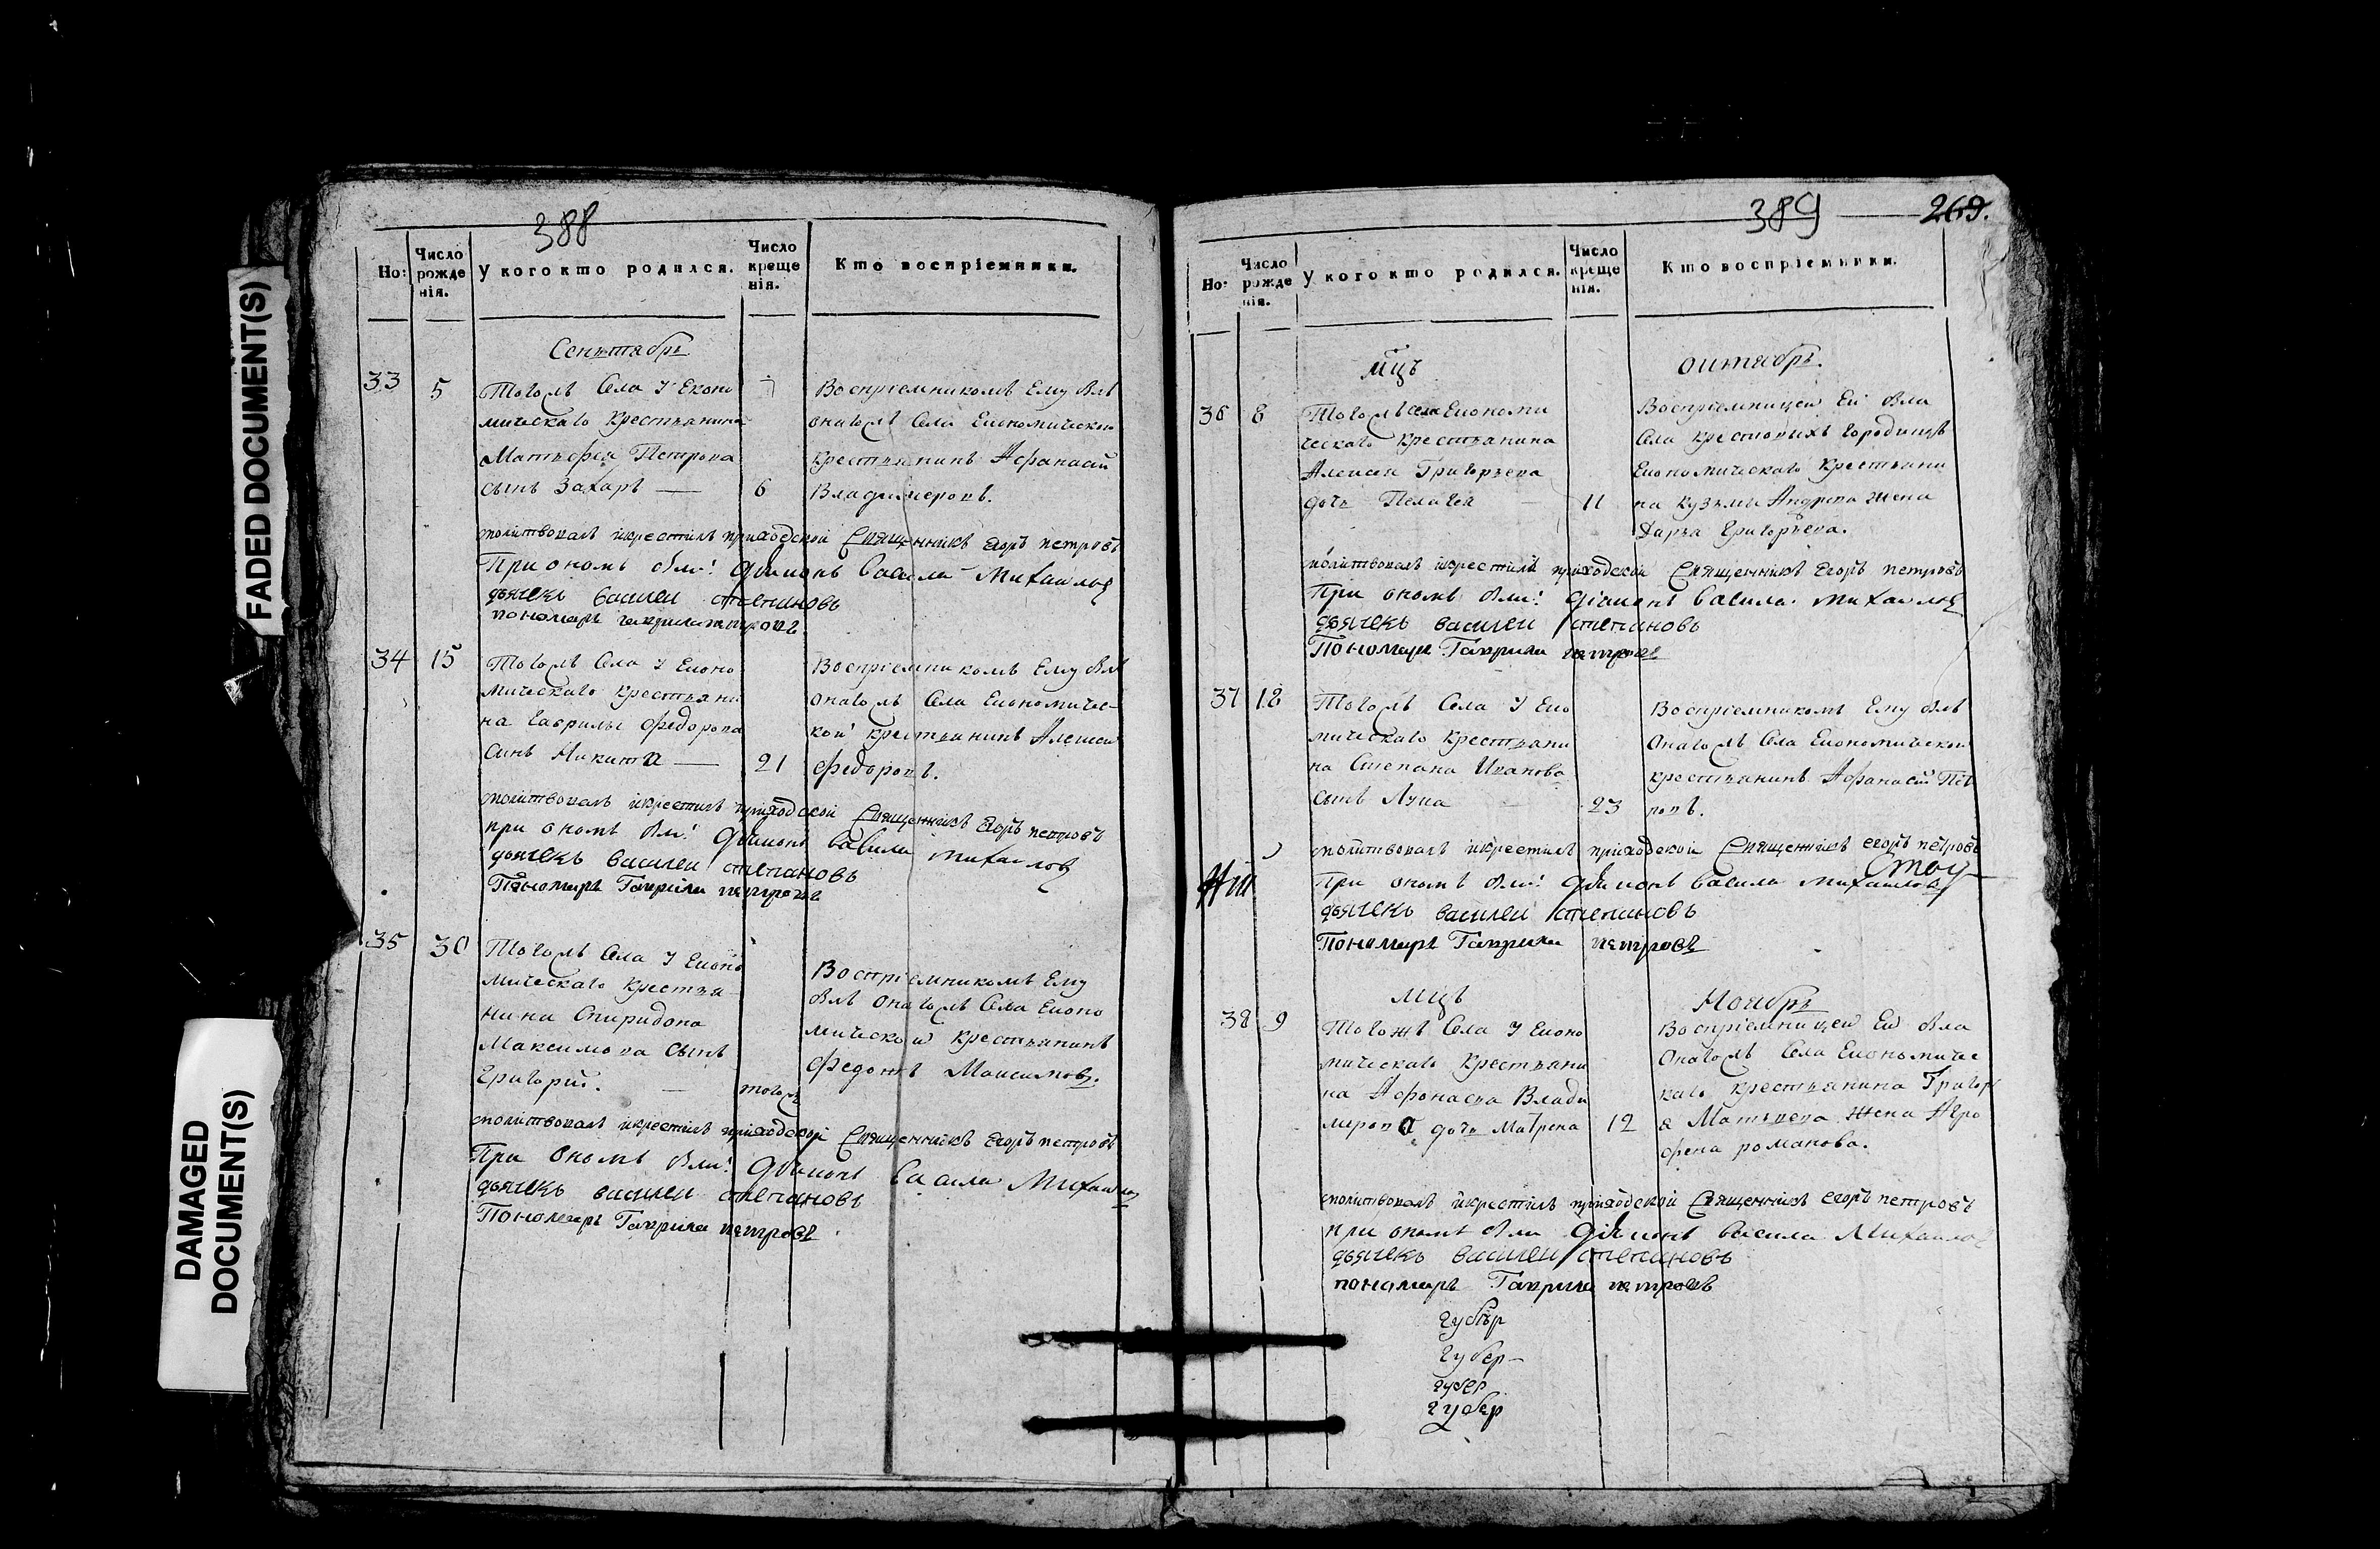 FADED DOCUMENT(S)
DAMAGED
DOCUMENT(S)
388
Но:
Число рожде нія.
У кого кто родился.
Число креще нія.
Кто воспріемники.
Сентябрь
33
5
Тогожъ Села У Еконо
мическаго Крестьянина
Матвѣея Петрова
сынъ Захаръ —
6
Воспріемникомъ Ему былъ
онагожъ Села Економической
крестьянинъ Афанасій
Владимеровъ.
молитвовалъ икрестилъ приходской Священникъ Егоръ петровъ
При ономъ были: діяконъ Василей Михайловъ
дьячекъ василеи степановъ
пономарь гаврила петровъ
34
15
Тогожъ Села У Еконо
мическаго крестьяни
на Гаврилы Федорова
Сынъ Никита —
21
Воспріемникомъ Ему былъ
онагожъ Села Економичес-
кой крестьянинъ Алексей
Федоровъ.
молитвовалъ икрестилъ приходской Священникъ Егоръ петровъ
при ономъ были: діяконъ василей михайловъ
дьячекъ василеи степановъ
Пономарь Гаврила петровъ
35
30
Тогожъ Села У Еконо
мическаго крестья
нина Спиридона
Максимова Сынъ
Григорій. —
тогожъ
Воспріемникомъ Ему
былъ онагожъ Села Еконо
мической крестьянинъ
Федотъ Максимовъ.
молитвовалъ икрестилъ приходской Священникъ Егоръ петровъ
При Ономъ были: діяконъ Василей Михайловъ
дьячекъ василеи степановъ
Пономарь Гаврила петровъ
389
269.
Но:
Число рожде нія.
У кого кто родился.
Число креще нія.
Кто воспріемники.
мцъ
октябрь.
36
8
Тогожъ села Економи
ческаго крестьянина
Алексея Григорьева
дочь Пелагея
11
Воспріемницей Ей была
Села крестовыхъ городищъ
Економическаго крестьяни
на кузьмы Андреева жена
Дарья Григорьева.
молитвовалъ икрестилъ приходской Священникъ Егоръ петровъ
При ономъ были: діяконъ Василей Михайловъ
дьячекъ василеи степановъ
Пономарь Гаврила петровъ
37
18
Тогожъ Села У Еко
мическаго крестьяни
на Степана Иванова
сынъ Лука
23
Воспріемникомъ Ему былъ
Онагожъ Села Економической
крестьянинъ Афанасій Пет
ровъ.
молитвовалъ икрестилъ приходской Священникъ егоръ петровъ
При ономъ были: діяконъ Василей Михайловъ
дьячекъ василеи степановъ
Пономарь Гаврила петровъ
мцъ
Ноябрь
38
9
Тогожъ Села У Еконо
мическаго Крестьяни
на Афонасья Влади
мерова дочь Матрена
12
Воспріемницей Ей была
Онагожъ Села Економичес
каго крестьянина Григорь
я Матвеева жена Агро
фена романова.
молитвовалъ икрестилъ приходской Священникъ егоръ петровъ
при ономъ были діяконъ василей Михайлов
дьячекъ василеи степановъ
пономарь Гаврила петровъ
губър
губер-
губер
губер